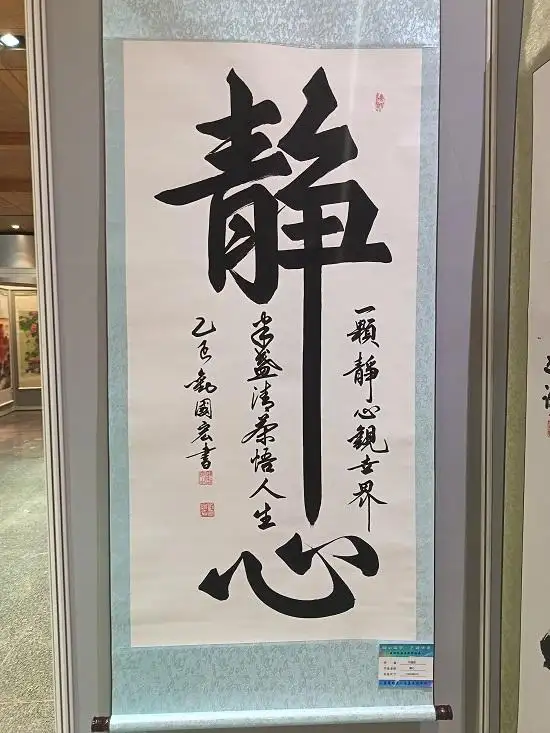 静心
一顆靜心觀世界
半盞清茶悟人生
乙巳 國宏書